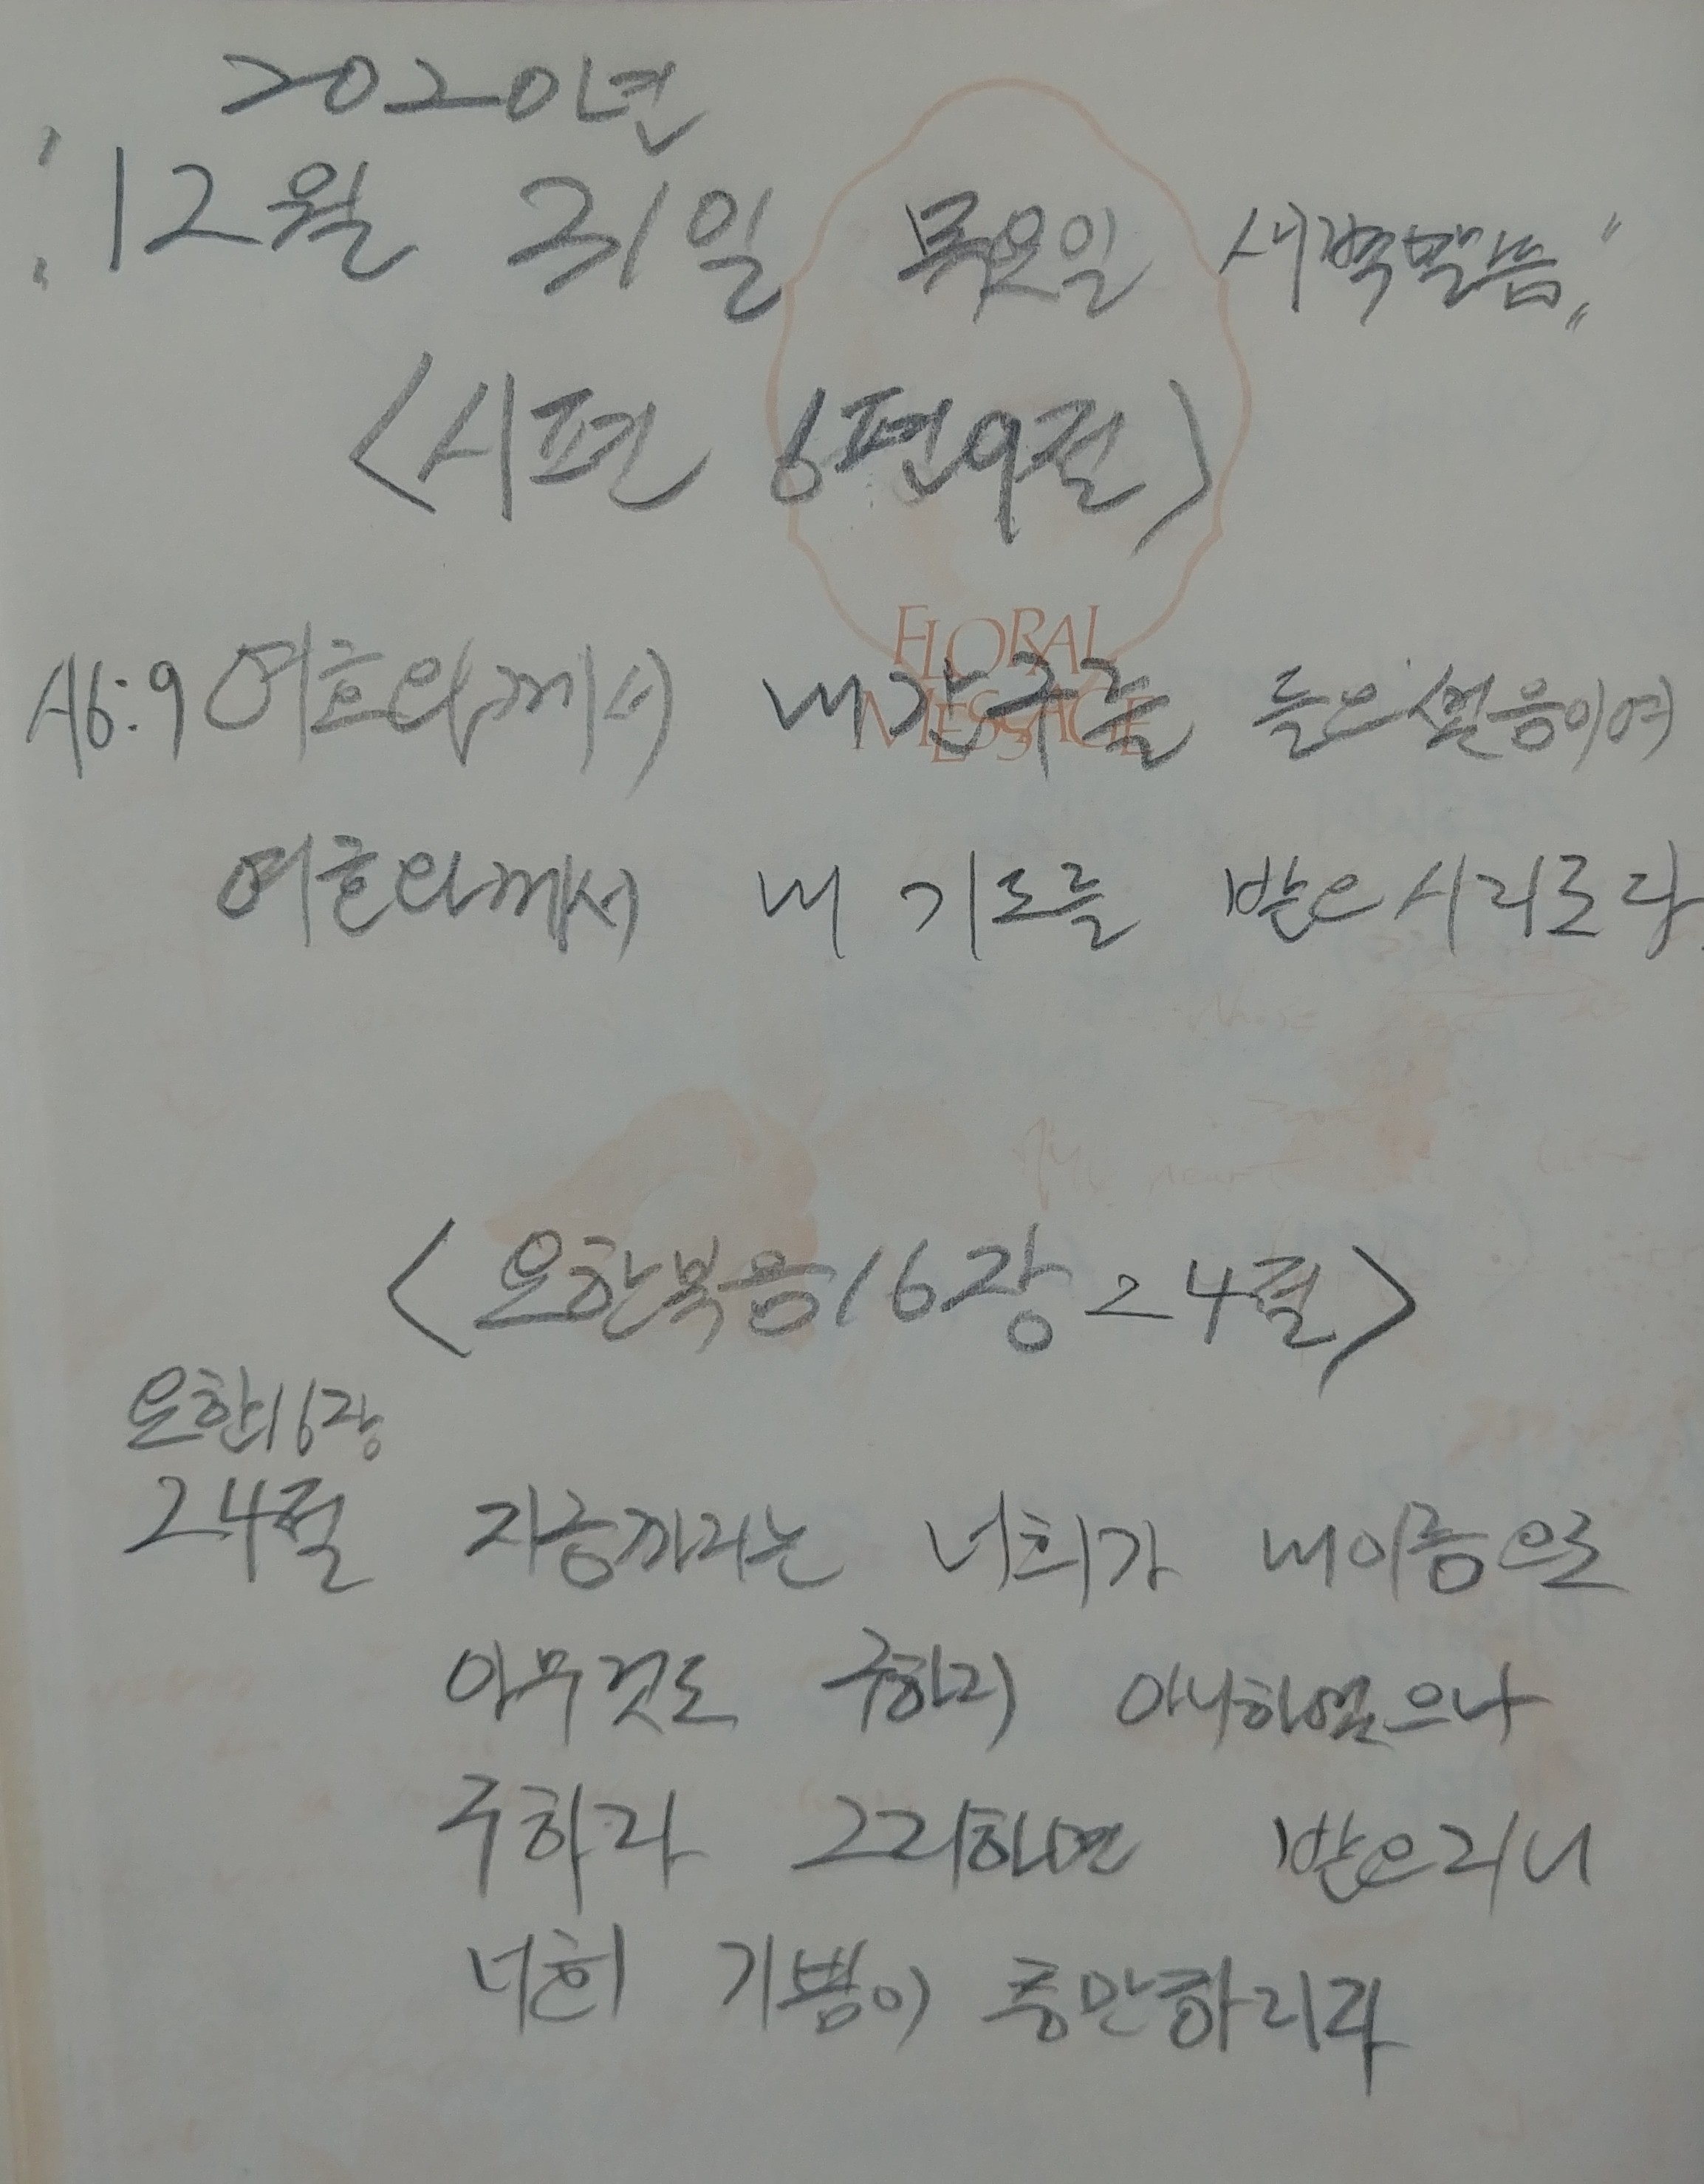 2020년
"12월 31일 목요일 새벽말씀"
<시편 6편9절>
FLORAL
MESSAGE
시6:9 여호와께서 내간구를 들으셨음이여
여호와께서 내 기도를 받으시리로다
<요한복음16장24절>
요한16장
24절 지금까지는 너희가 내이름으로
아무것도 구하지 아니하였으나
구하라 그리하면 받으리니
너희 기쁨이 충만하리라